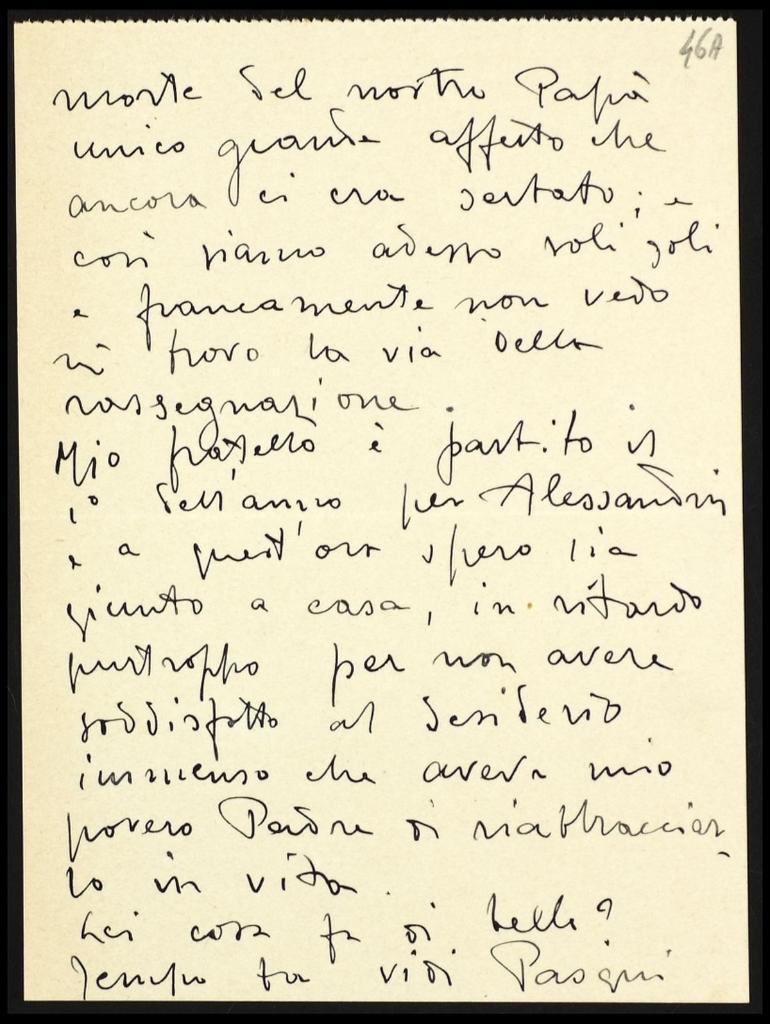 46A
morte del nostro Papà
unico grande affetto che
ancora ci era restato; e
così siamo adesso soli soli
e francamente non vedo
nè trovo la via della
rassegnazione.
Mio fratello è partito il
1° dell'anno per Alessandria
e a quest'ora spero sia
giunto a casa, in ritardo
purtroppo per non avere
soddisfatto al desiderio
immenso che aveva mio
povero Padre di riabbracciar-
lo in vita.
Lei cosa fa di bello?
Tempo fa vidi Pasqui